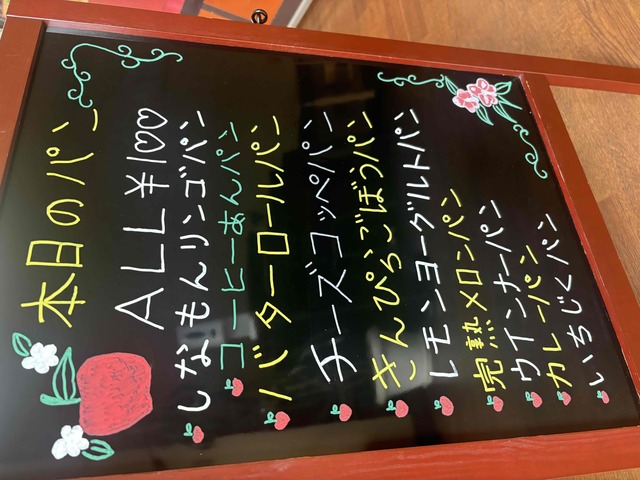 本日のパン
ALL ¥100
しなもんリンゴパン
コーヒーあんパン
バターロールパン
チーズコッペパン
きんぴらごぼうパン
レモンヨーグルトパン
完熟メロンパン
ウインナーパン
カレーパン
いちじくパン